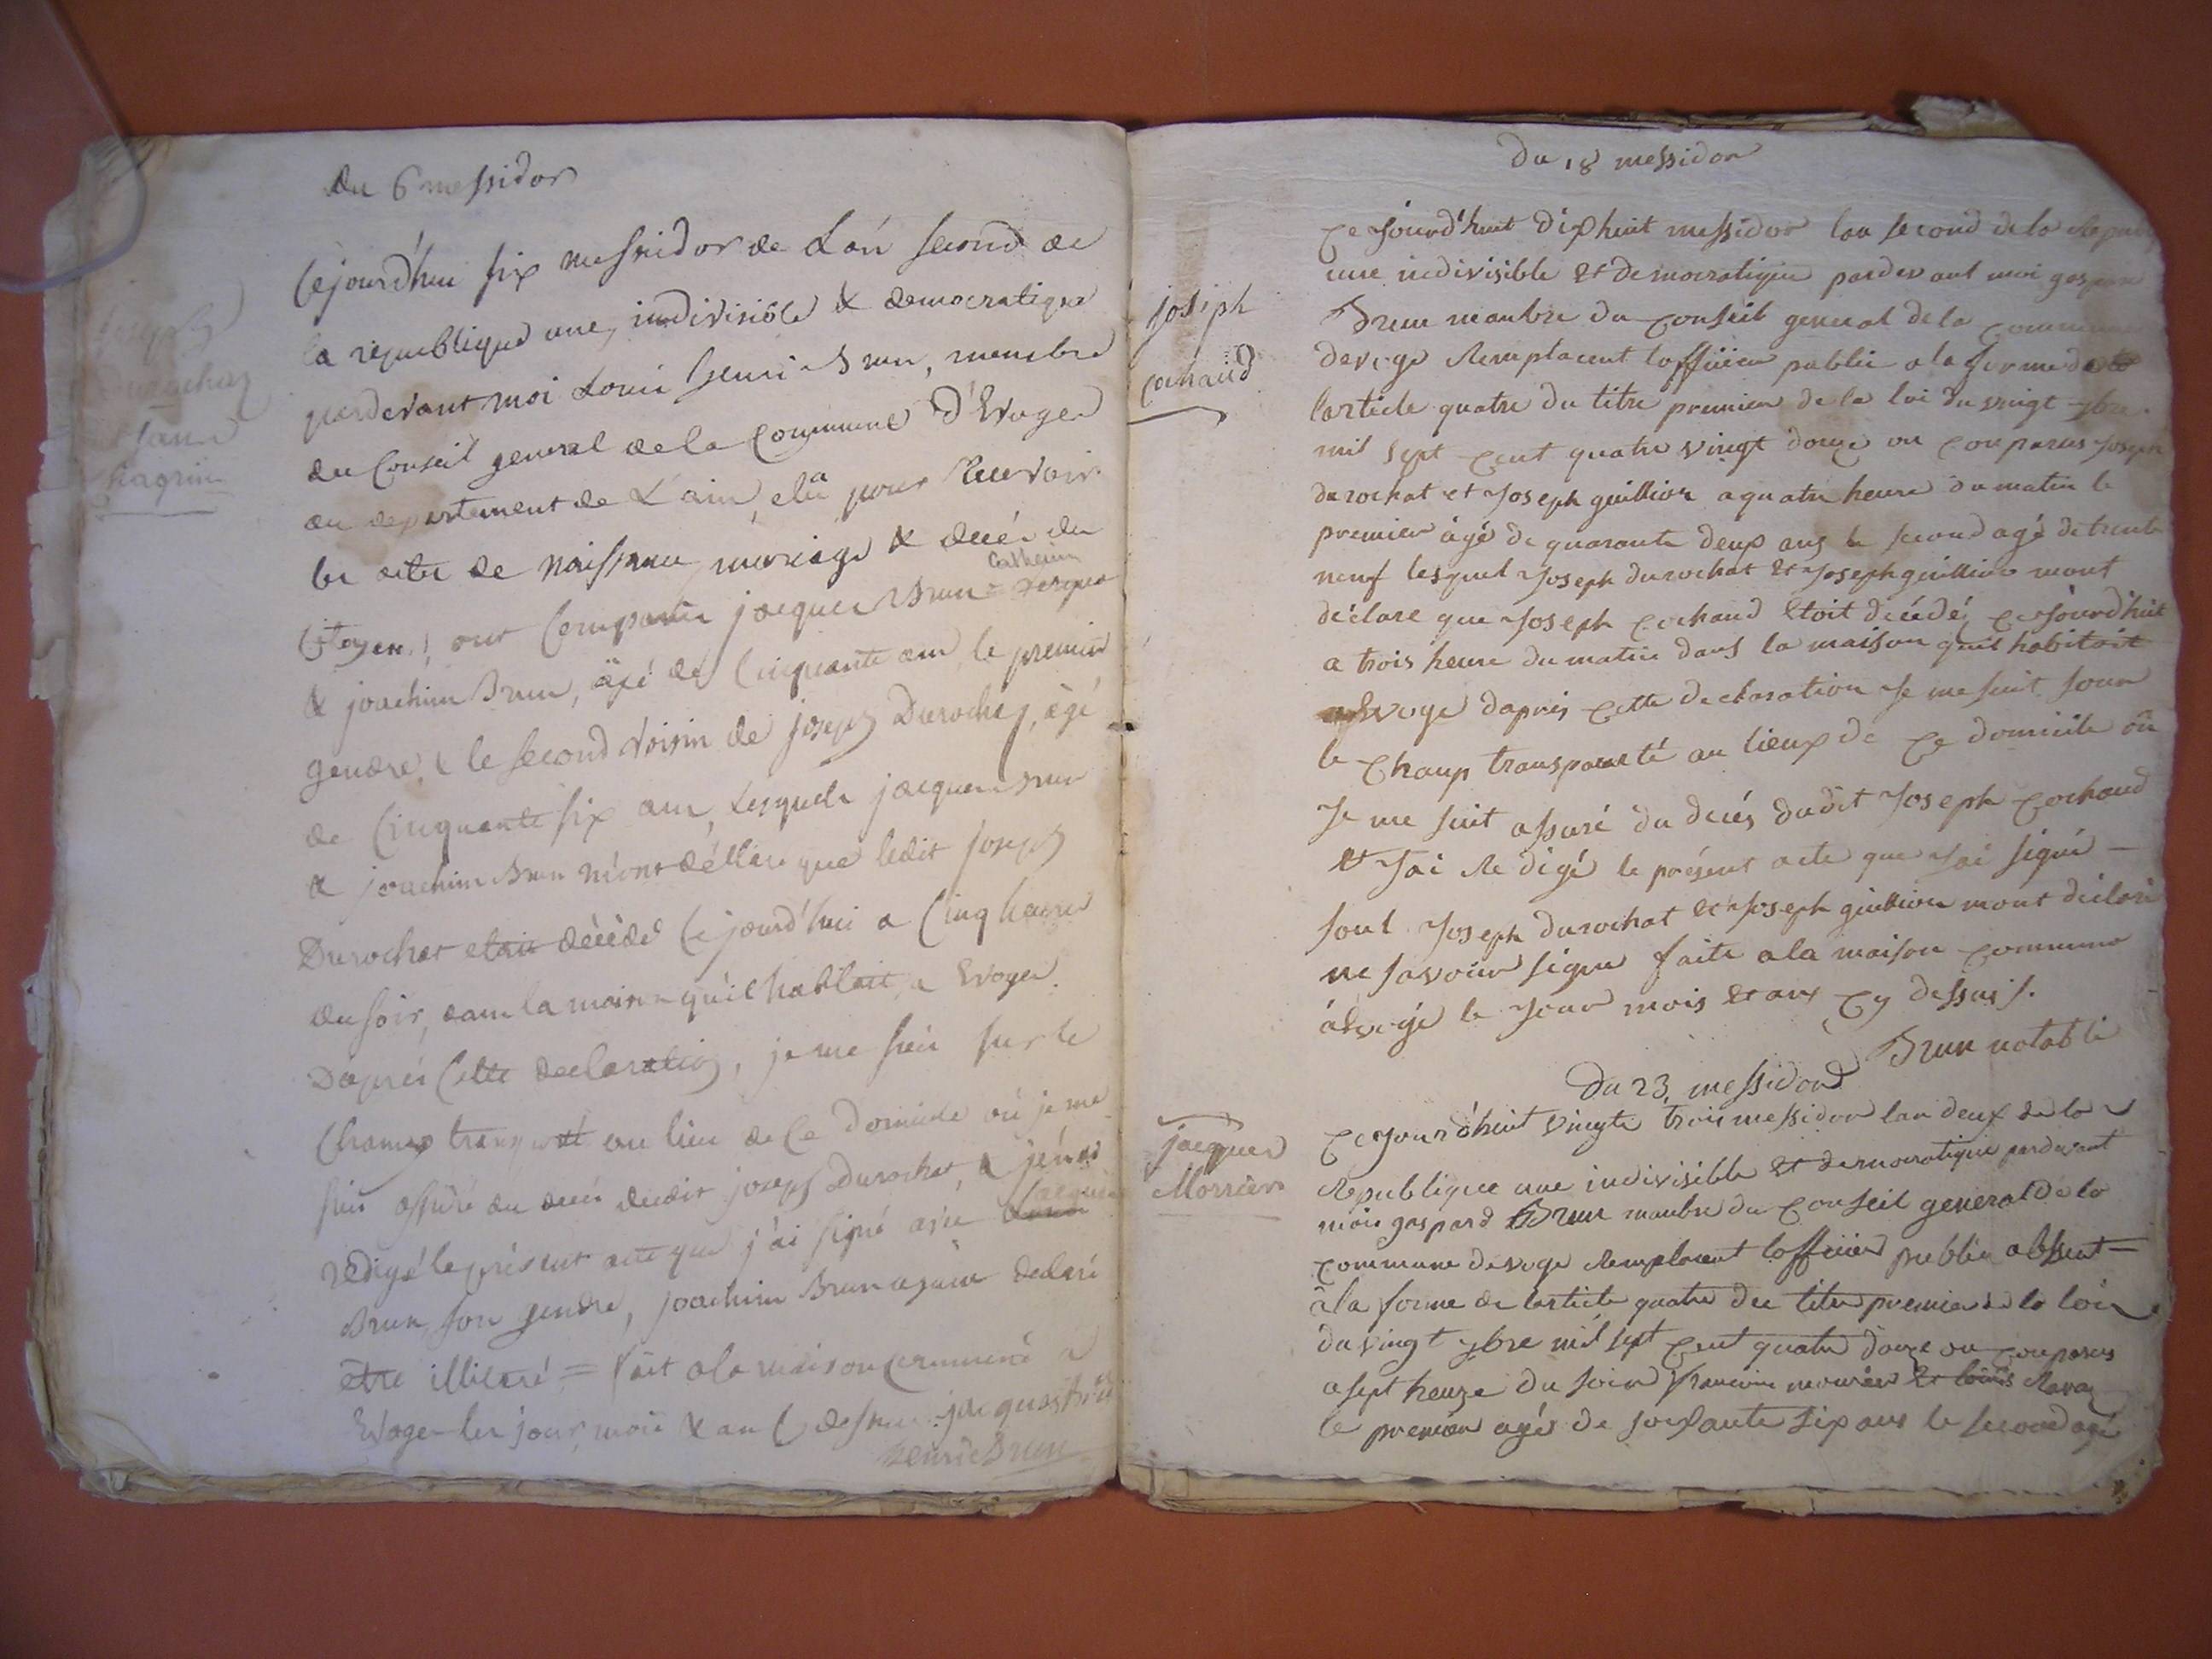 du 6 messidor
Joseph
Durochat
sans
chagrin
Cejourd'hui six messidor de L'an second de
la republique une, indivisible & democratique
pardevant moi Louis henri Brun, membre
du Conseil general de la Commune d'Evoges
au departement de L'ain, elu pour Recevoir
les actes de Naissance, mariage & decés des
Citoyens, ont Comparus jacques Brun =
& joachim Brun, âgé de Cinquante ans, le premier
gendre, & le second Voisin de joseph Durochat, âgé
de Cinquante six ans, Lesquels jacques Brun
& joachim Brun m'ont déclaré que ledit joseph
Durochat etait décédé Cejourd'hui a Cinq heures
du soir, dans la maison qu'il habitait, a Evoges.
D'aprés Cette declaration, je me suis sur le
Champ transporté au lieu de Ce Domicile où je me
suis assuré du decés dudit joseph Durochat, & j'en ai
redigé le présent acte que j'ai signé avec jacques
Brun, son gendre, joachim Brun ayant declaré
etre illiteré = fait a la maison Commune a
Evoges les jour, mois & an Ci dessus. jacques Brun
henri Brun
Du 18 messidor
joseph
cochaud
Cejourd'huit dixhuit messidor lan second de la Republ
une indivisible et democratique pardevant moi gaspard
Brun manbre du Conseil general de la Commune
devoge Remplacent lofficier public a la forme de
l'article quatre du titre premier de la loi du vingt 7bre
mil sept cent quatre vingt douze on Conparus Joseph
durochat et Joseph guillion a quatre heure du matin le
premier âgé de quarante deux ans le second agé de trente
neuf lesquel Joseph durochat et Joseph guillion mont
déclare que Joseph cochaud Etoit décédé, cejourd'huit
a trois heure du matin dans la maison quil habitoit
a Evoge daprés Cette declaration Je me suit sour
le Chanp transporté au lieux de Ce domicile où
Je me suit assuré du decés dudit Joseph cochaud
et Jai Redigé le présent acte que Jai signé —
soul Joseph durochat et Joseph guillion mont déclaré
ne savoir signe faite a la maison commune
á Evoge le Jour mois et ans Cy dessus.
Brun notable
Du 23 messidor
jacques
Morrier
Cejourd'huit vingte trois messidor lan deux de la
Republique une indivisible et democratique pardevant
moi gaspard Brun manbre du Conseil general de la
commune devoge Remplacent lofficier publiu absent —
a la forme de larticle quatre du titre premier de la loi
du vingt 7bre mil sept Cent quatre douze on conparus
a sept heuze du soir francois morier et louis Ravaz
le premier agé de soixante six ans le second agé